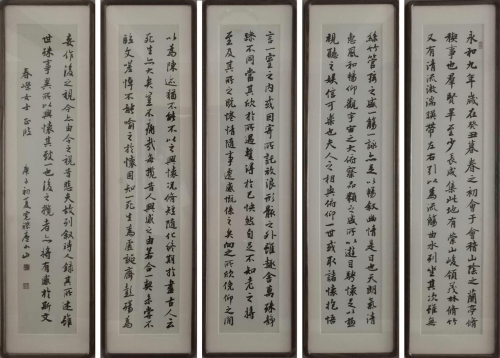 永和九年歲在癸丑暮春之初會于會稽山陰之蘭亭脩
禊事也羣賢畢至少長咸集此地有崇山峻領茂林脩竹
又有清流激湍暎帶左右引以為流觴曲水列坐其次雖無
絲竹管絃之盛一觴一詠亦足以暢叙幽情是日也天朗氣清
惠風和暢仰觀宇宙之大俯察品類之盛所以遊目騁懷足以極
視聽之娛信可樂也夫人之相與俯仰一世或取諸懷抱悟
言一室之內或因寄所託放浪形骸之外雖趣舍萬殊靜
躁不同當其欣於所遇蹔得於己快然自足不知老之將
至及其所之既惓情隨事遷感慨係之矣向之所欣俛仰之間
以為陳迹猶不能不以之興懷況脩短隨化終期於盡古人云
死生亦大矣豈不痛哉每攬昔人興感之由若合一契未嘗不
臨文嗟悼不能喻之於懷固知一死生為虛誕齊彭殤為
妄作後之視今亦由今之視昔悲夫故列叙時人錄其所述雖
世殊事異所以興懷其致一也後之攬者亦將有感於斯文
女士正 庚子初夏